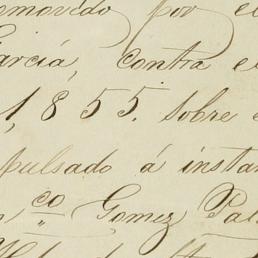 emovido por e
García, contra e
1,855. Sobre
pulsado á instan
n co Gomez Pal